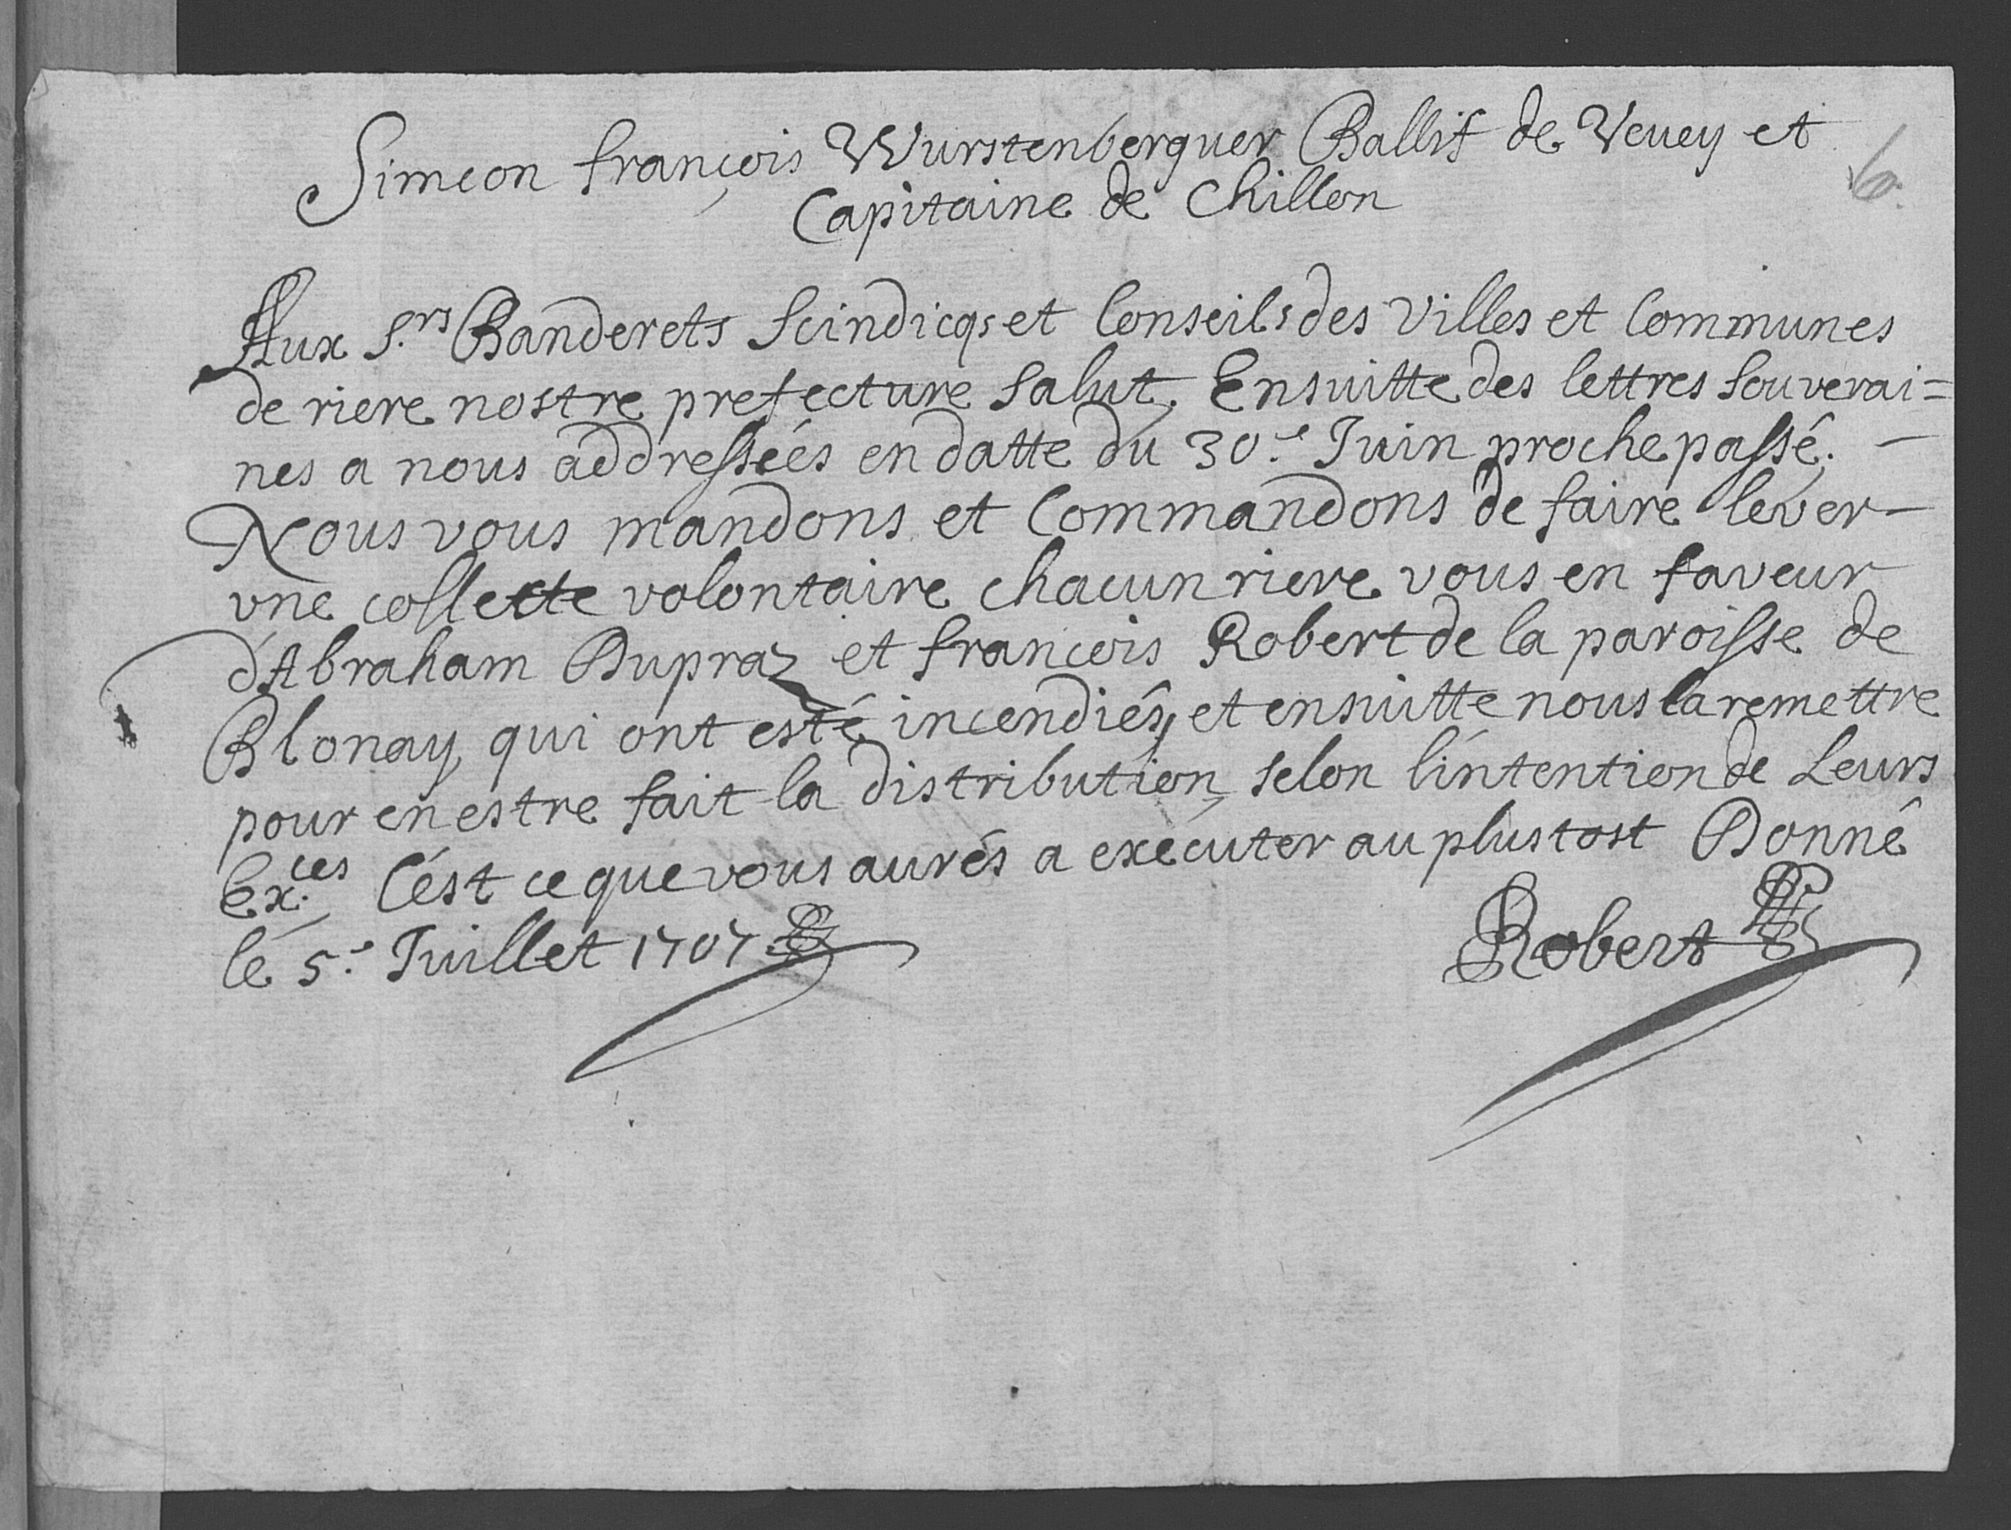 Simeon françois Wurstenberguer Ballif de Vevey et
Capitaine de Chillon
6.
Aux S.rs Banderets Scindicqs et Conseils des Villes et Communes
de riere nostre prefecture Salut, Ensuitte des lettres Souverai=
nes a nous addresséés en datte du 30.e Juin proche passé. –
Nous vous mandons et Commandons de faire lever –
vne collecte volontaire chacun riere vous en faveur
d'Abraham Dupraz et françois Robert de la paroisse de
Blonay, qui ont esté incendiés, et ensuitte nous la remettre
pour en estre fait la distribution, selon l'intention de Leurs
Ex.ces C'est ce que vous aurés a exécuter au plustost Donné
le 5.e Juillet 1707
Robert